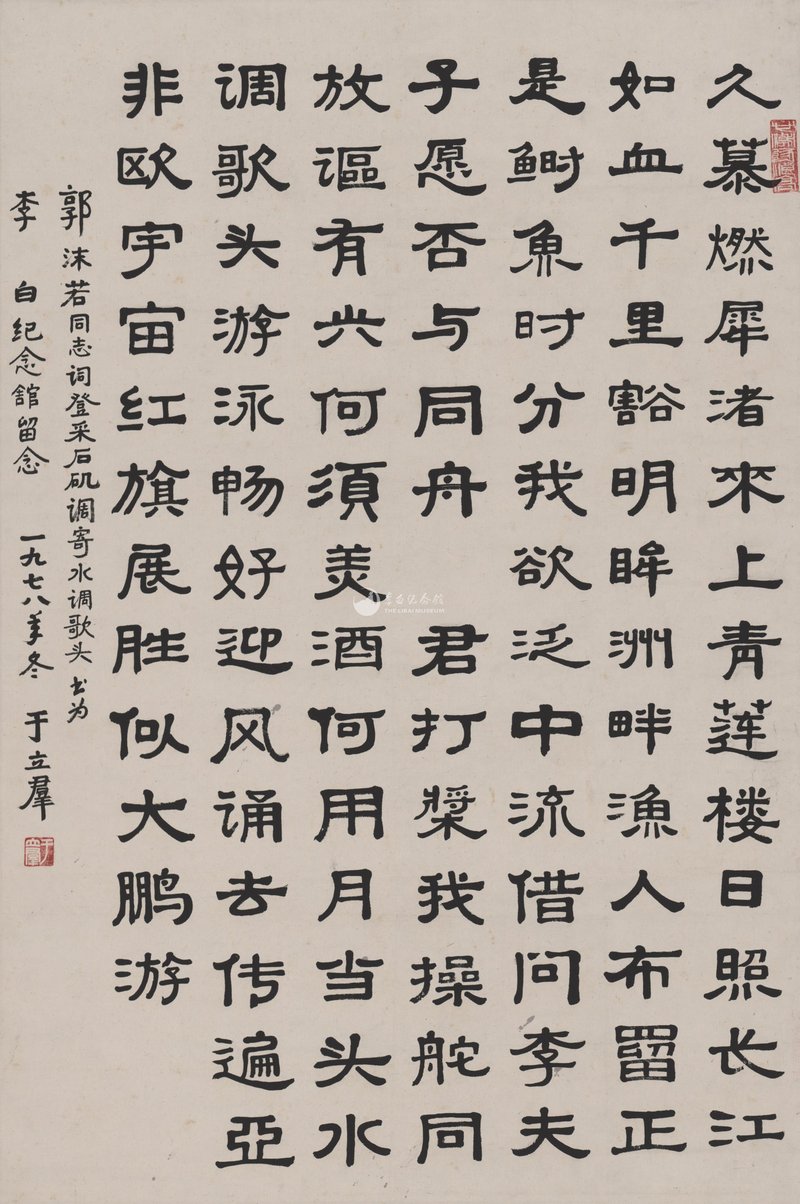 久慕燃犀渚來上青莲楼日照长江
如血千里豁明眸洲畔渔人布罶正
是鲥魚时分我欲泛中流借问李夫
子愿否与同舟 君打槳我操舵同
放謳有兴何須羡酒何用月当头水
调歌头游泳畅好迎风诵去传遍亞
非欧宇宙红旗展胜似大鹏游
郭沫若同志词登采石矶调寄水调歌头 书为
李白纪念舘留念 一九七八年冬 于立羣
李白纪念馆
THE LIBAI MUSEUM